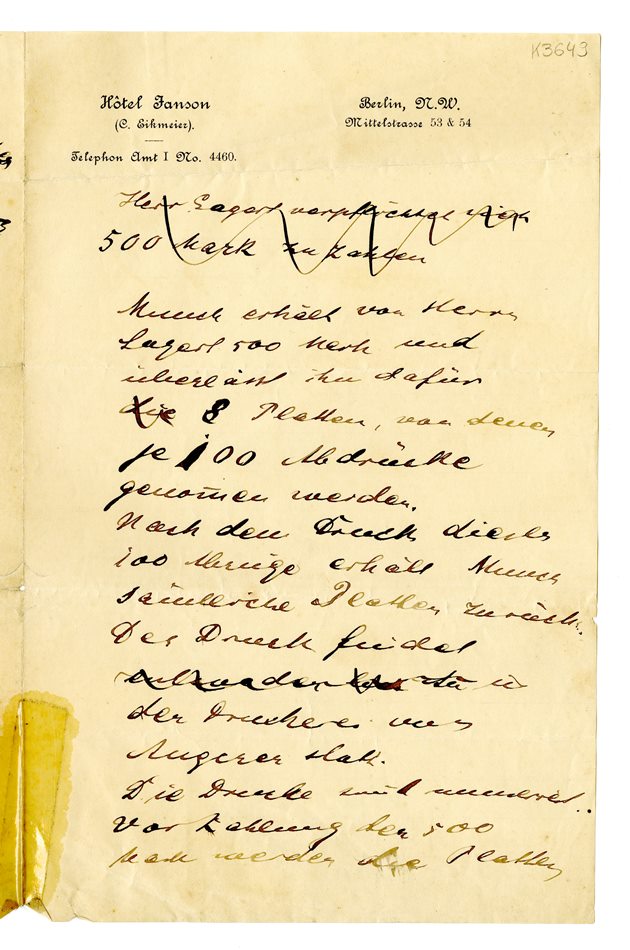 K3643
Hôtel Janson
(C. Eikmeier).
Telephon Amt I No. 4460.
Berlin, N.W.
Mittelstrasse 53 & 54
Herr Sagert verpflichtet sich
500 Mark zu zahlen
Munch erhält von Herrn
Sagert 500 Mark und
überlässt ihm dafür
die 8 Platten, von denen
je 100 Abdrücke
genommen werden.
Nach dem Druck dieser
100 Abzüge erhält Munch
sämtliche Platten zurück.
Der Druck findet
entweder in
der Druckerei von
Angerer statt.
Die Drucke sind numeriert..
Vor Zahlung der 500
Mark werden die Platten